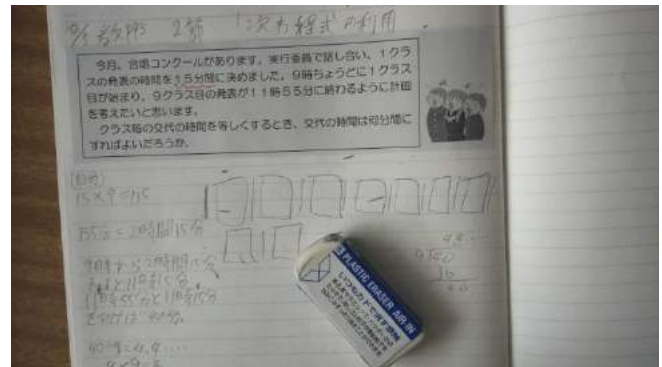 2節 「一次方程式の利用」
今月、合唱コンクールがあります。実行委員で話し合い、1クラ
スの発表の時間を15分間に決めました。9時ちょうどに1クラス
目が始まり、9クラス目の発表が11時55分に終わるように計画
を考えたいと思います。
クラス毎の交代の時間を等しくするとき、交代の時間は何分間に
すればよいだろうか。
(自分)
15×9=135
135分=2時間15分
9時から2時間15分
11時55分と11時15分
40÷9=4.4....
PLASTIC ERASER AIR-IN
いつもカドで消す感触
4.4...
9)40
36
40